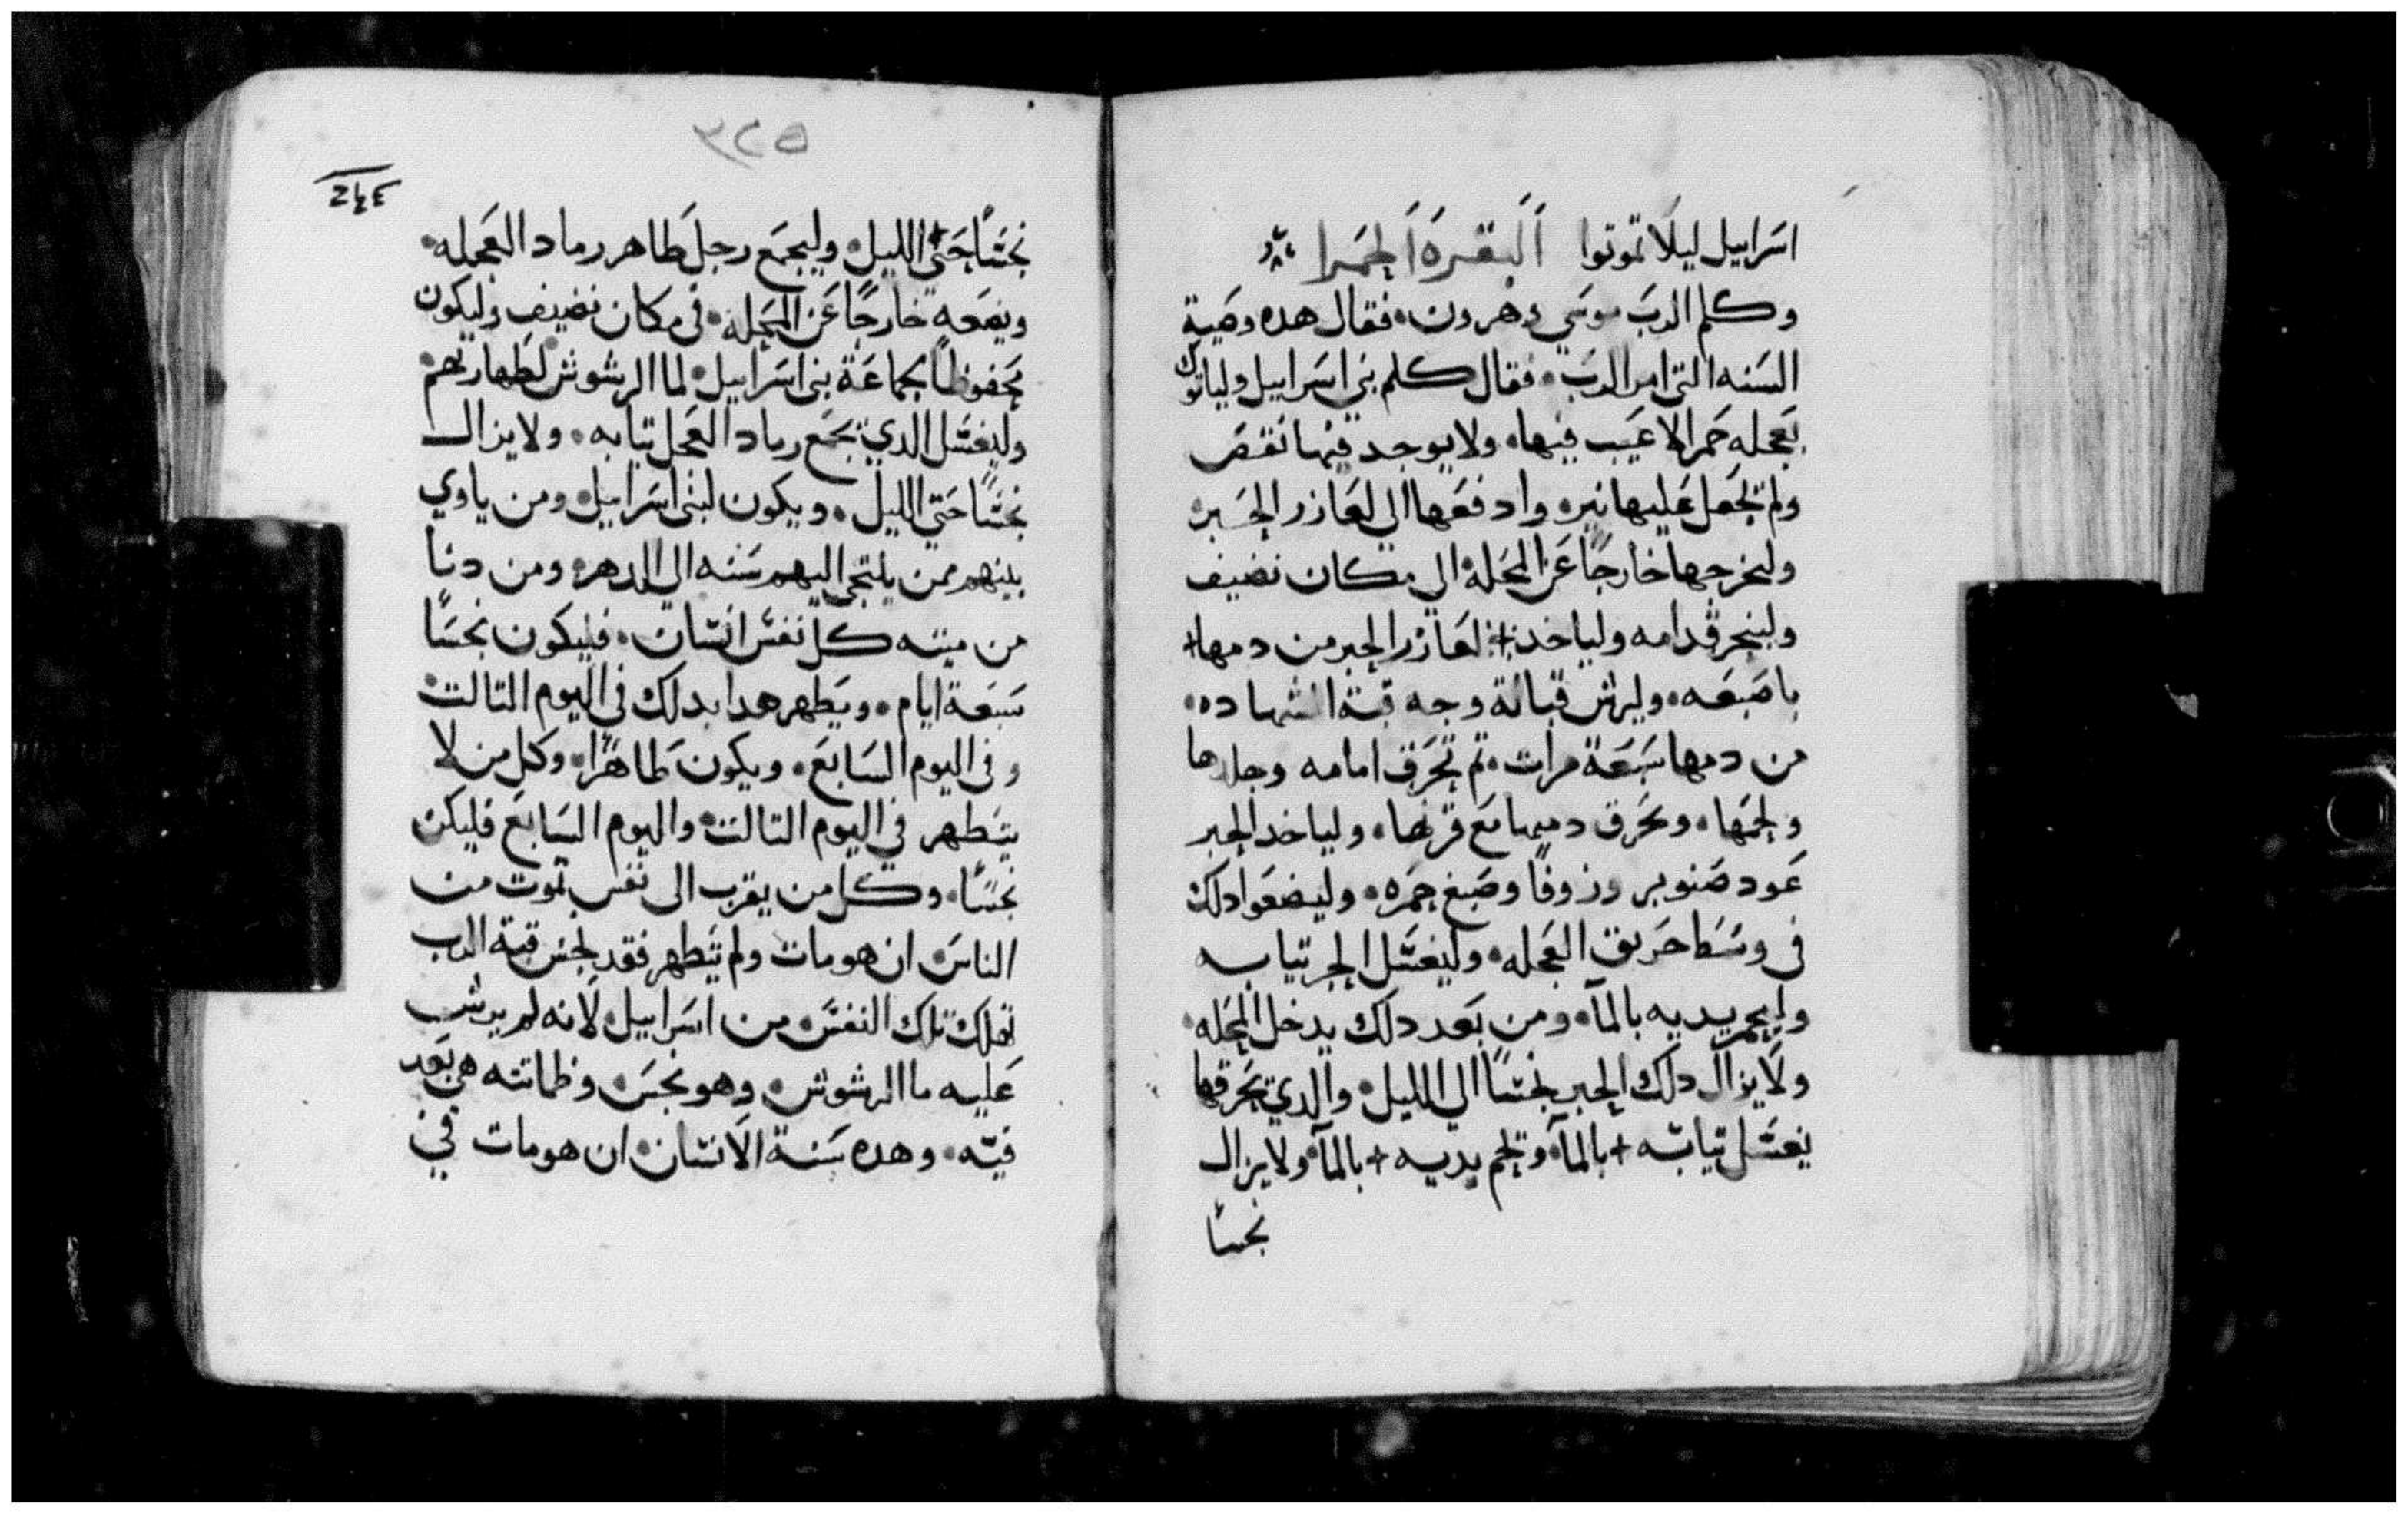 اسراييل ليلا تموتوا البقره الحمرا
وكلم الرب موسي وهرون فقال هده وصية
السنه التي امر الرب فقال كلم بني اسراييل ولياتوك
بعجله حمرا لا عيب فيها ولا يوجد فيها نقص
ولم تجعل عليها نير وادفعها الي لعازر الحبر
وليخرجها خارجًا عن المحلة الي مكان نضيف
ولينحر قدامه ولياخد لعازر الحبر من دمها
باصبعه وليرش قبالة وجه قبة الشهاده
من دمها سبعة مرات تم تحرق امامه وجلدها
ولحمها ودمها مع قرنها ولياخد الحبر
عود صنوبر وزوفا وصبغ حمره وليضعوا دلك
في وسط حريق العجله وليغسل الحبر تيابه
يديه بالمآ ومن بعد دلك يدخل المحله
ولا يزال دلك الحبر نجسًا الي الليل والدي يحرقها
يغسل تيابه بالمآ يديه بالمآ ولا يزال
نجسًا
٣٢٥
نجسًا حتي الليل وليجمع رجل طاهر رماد العجله
ويضعه خارجًا عن المحله في مكان نضيف وليكون
محفوظًا لجماعة بني اسراييل لما الرشوش لطهارتهم
وليغسل الدي يجمع رماد العجل تيابه ولا يزال
نجسًا حتي الليل ويكون لبني اسراييل ومن ياوي
بينهم ممن يلتجي اليهم سنه الي الدهر ومن دنا
من ميته كل نفس انسان فليكون نجسًا
سبعة ايام ويطهر هدا بدلك في اليوم التالت
وفي اليوم السابع ويكون طاهرًا وكل من لا
يتطهر في اليوم التالت واليوم السابع فليكن
نجسًا وكل من يقرب الي نفس تموت من
الناس ان هو مات ولم يتطهر فقد نجس قبة الرب
تهلك تلك النفس من اسراييل لانه لم يرش
عليه ما الرشوش وهو نجس هي بعد
فيه وهده سنة الانسان ان هو مات في